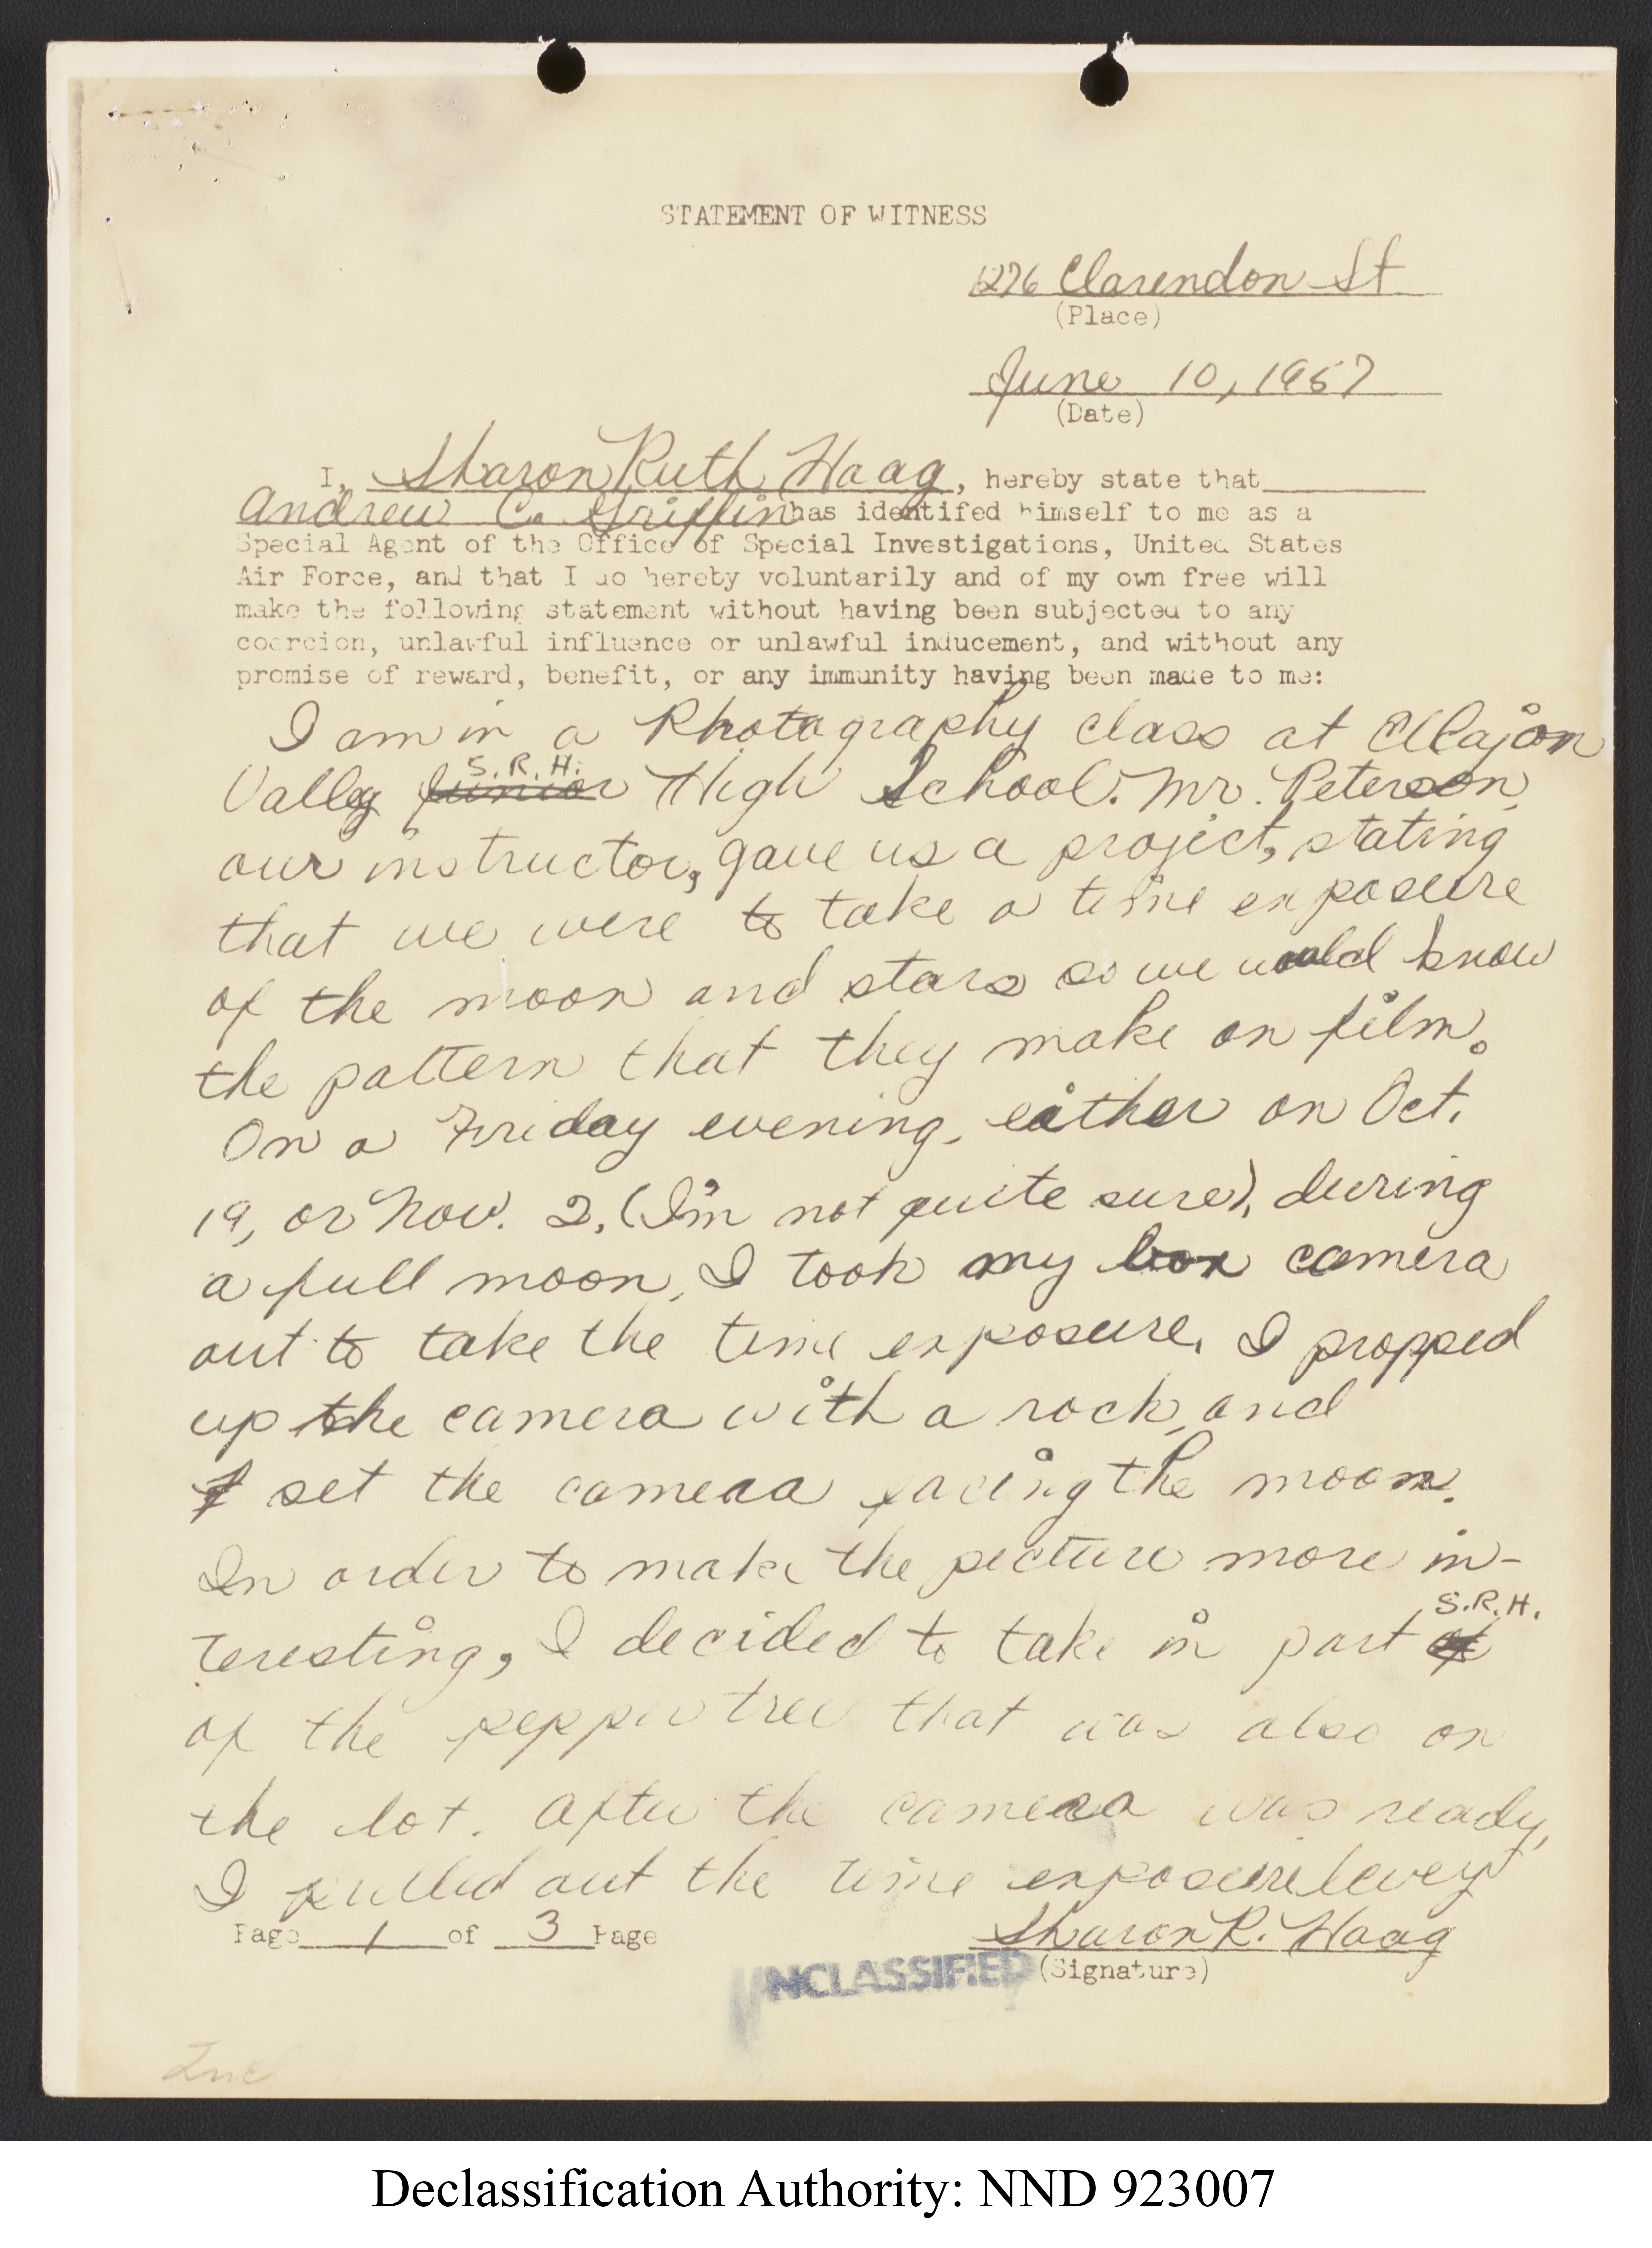 STATEMENT OF WITNESS
1276 Clarendon St
(Place)
June 10, 1957
(Date)
I, Sharon Ruth Haag, hereby state that
Andrew C. Griffin has identifed himself to me as a
Special Agent of the Office of Special Investigations, United States
Air Force, and that I do hereby voluntarily and of my own free will
make the following statement without having been subjected to any
coercion, unlawful influence or unlawful inducement, and without any
promise of reward, benefit, or any immunity having been made to me:
I am in a Photography class at El Cajon
S. R. H.
Valley Junior High School. Mr. Peterson,
our instructor, gave us a project, stating
that we were to take a time exposure
of the moon and stars so we would know
the pattern that they make on film.
On a Friday evening, either on Oct.
19, or Nov. 2, (I'm not quite sure), during
a full moon, I took my box camera
out to take the time exposure. I propped
up the camera with a rock, and
I set the camera facing the moon.
In order to make the picture more in-
S.R.H.
teresting, I decided to take in part of
of the pepper tree that was also on
the lot. After the camera was ready,
I pulled out the time exposure lever
Page 1 of 3 Page
Sharon R. Haag
(Signature)
UNCLASSIFIED
Incl
Declassification Authority: NND 923007